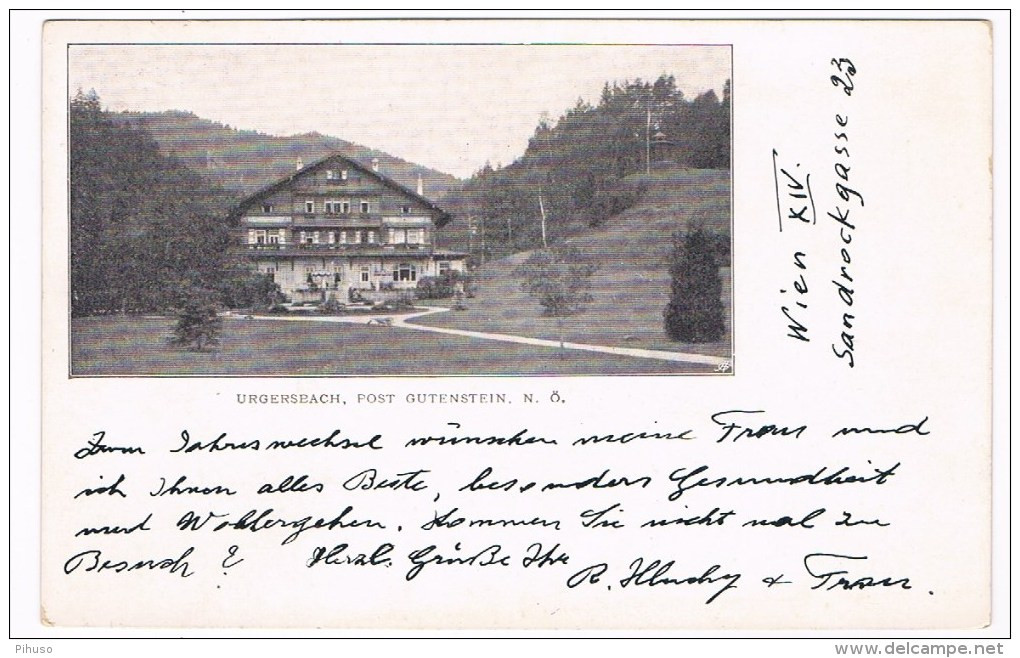 Wien XIV.
Sandrockgasse 23
URGERSBACH, POST GUTENSTEIN, N. Ö.
Zum Jahreswechsel wünschen meine Frau und
ich Ihnen alles Beste, besonders Gesundheit
und Wohlergehen. Kommen Sie nicht mal zu
Besuch? Herzl. Grüße Ihr
R. & Frau.
Pihuso
www.delcampe.net